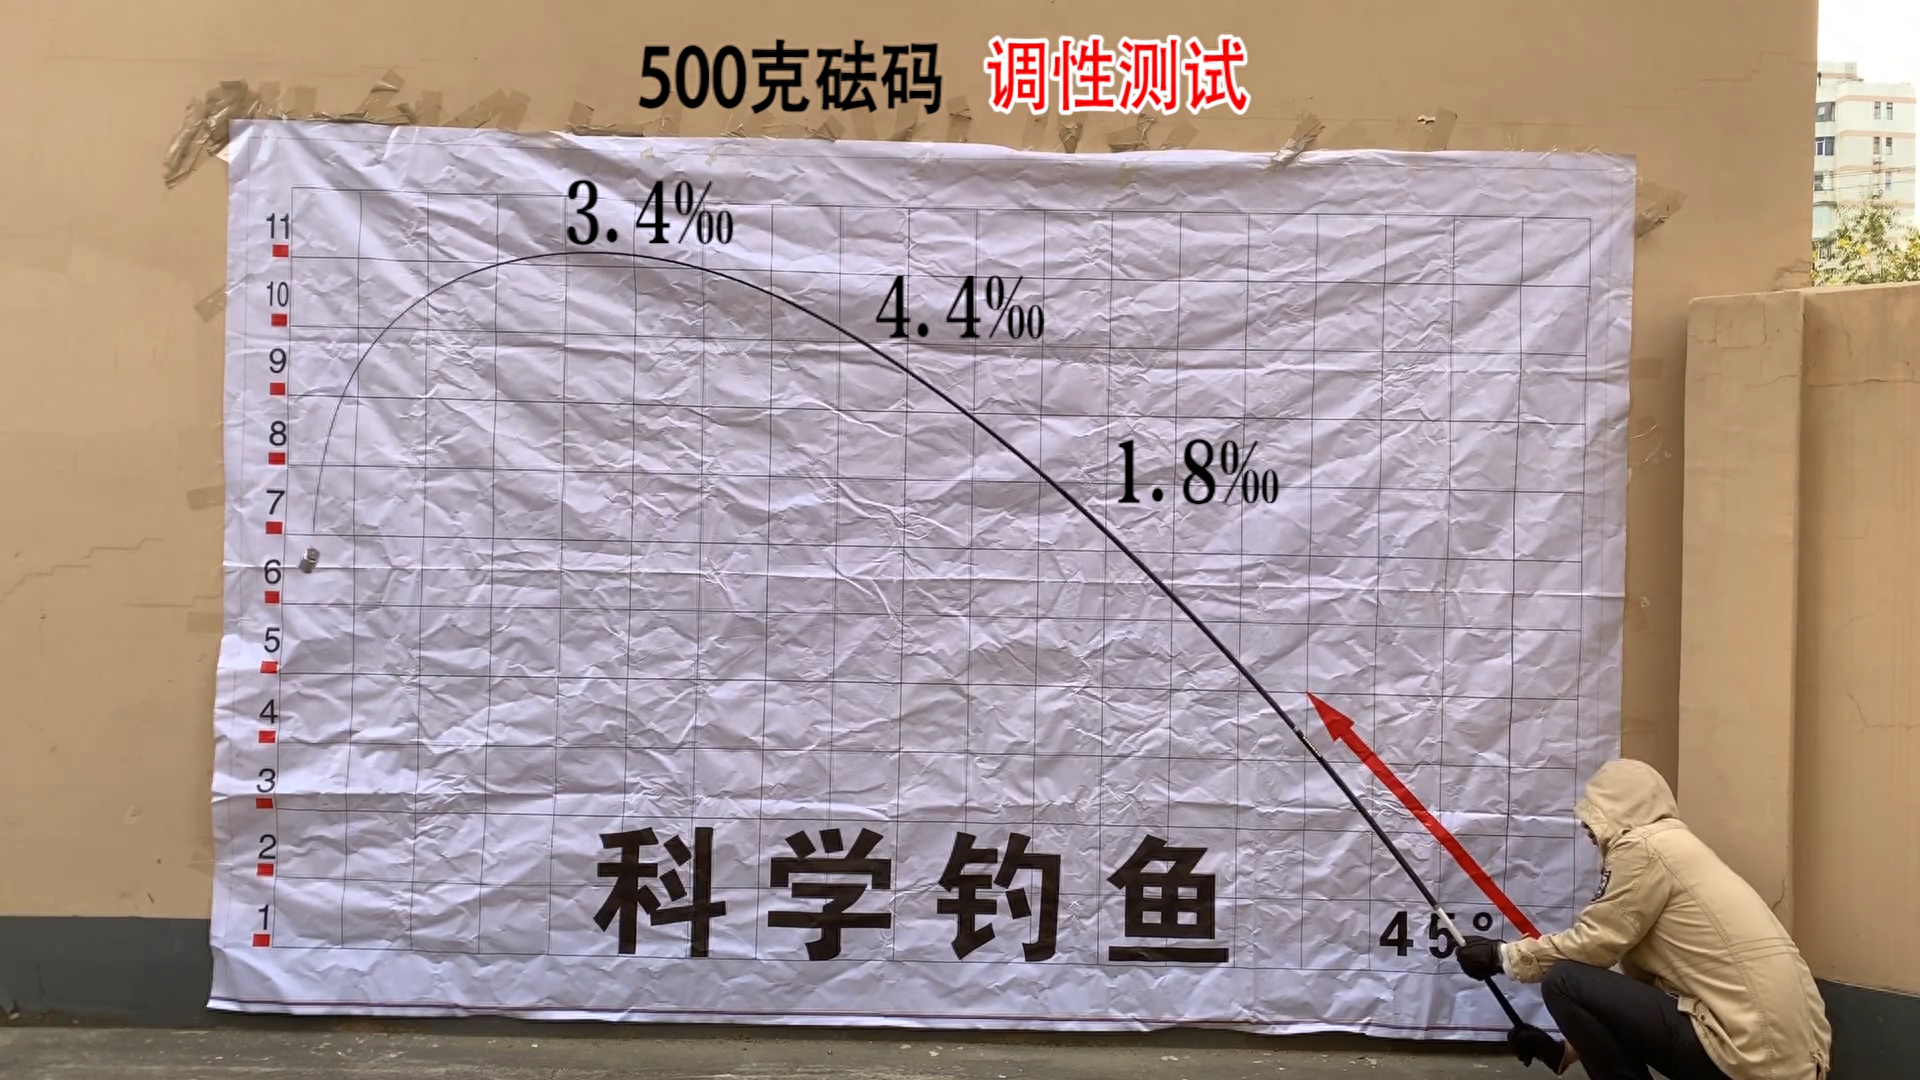 500克砝码 调性测试
3.4‰
4.4‰
1.8‰
11
10
9
8
7
6
5
4
3
2
1
科学钓鱼
45°